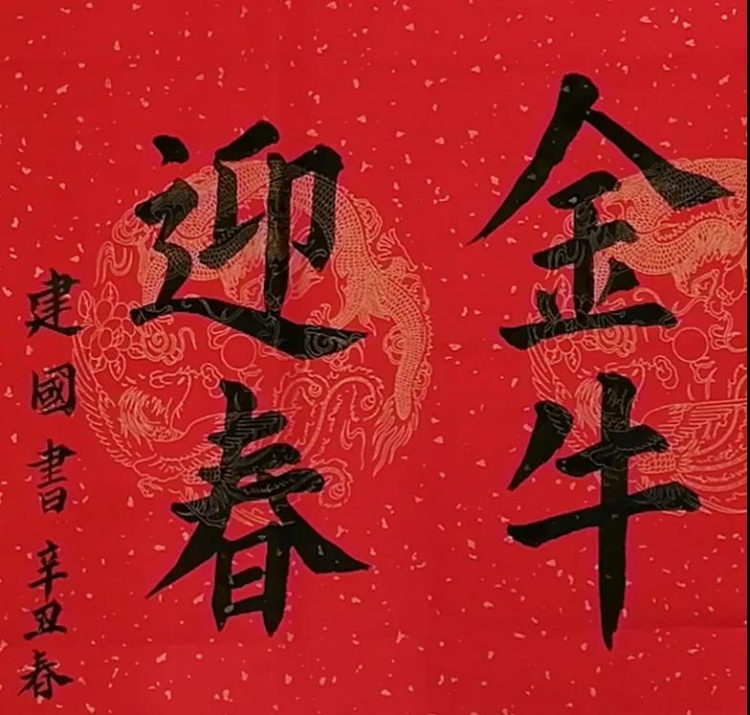 金牛
迎春
建國書 辛丑春